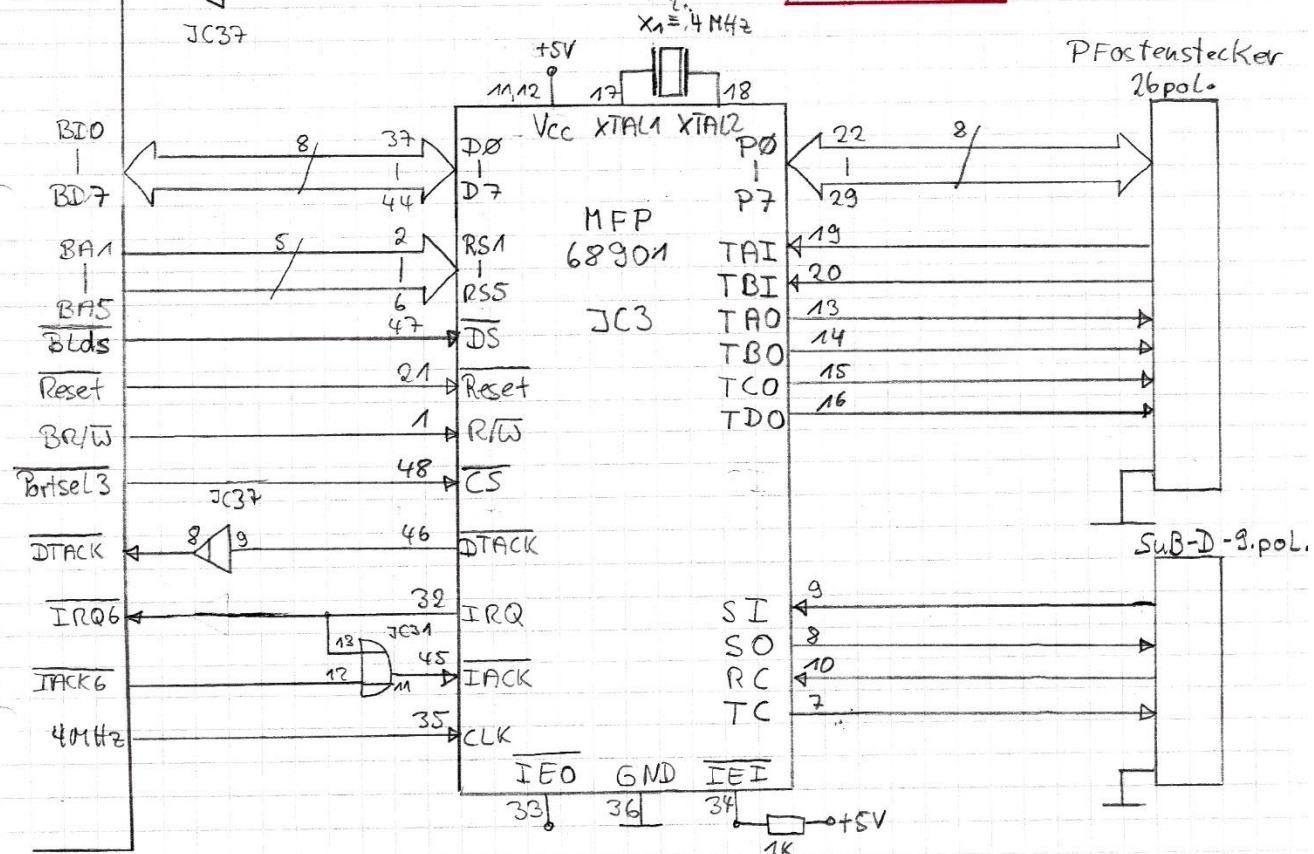 JC37
X1 ≡ 4 MHz
+5V
11,12
17
18
Pfostenstecker
26pol.
Vcc
XTAL1
XTAL2
BD0
|
BD7
8
37
|
44
D0
|
D7
P0
|
P7
22
|
29
8
MFP
68901
JC3
BA1
|
BA5
5
2
|
6
RS1
|
RS5
TAI
19
TBI
20
TAO
13
TBO
14
TCO
15
TDO
16
BLds
47
DS
Reset
21
Reset
BR/W
1
R/W
Portsel3
48
CS
JC37
DTACK
8
9
46
DTACK
SUB-D-9.pol.
IRQ6
32
IRQ
JC31
13
12
11
45
IACK
IACK6
4MHz
35
CLK
SI
9
SO
8
RC
10
TC
7
IEO
GND
IEI
33
36
34
+5V
1K